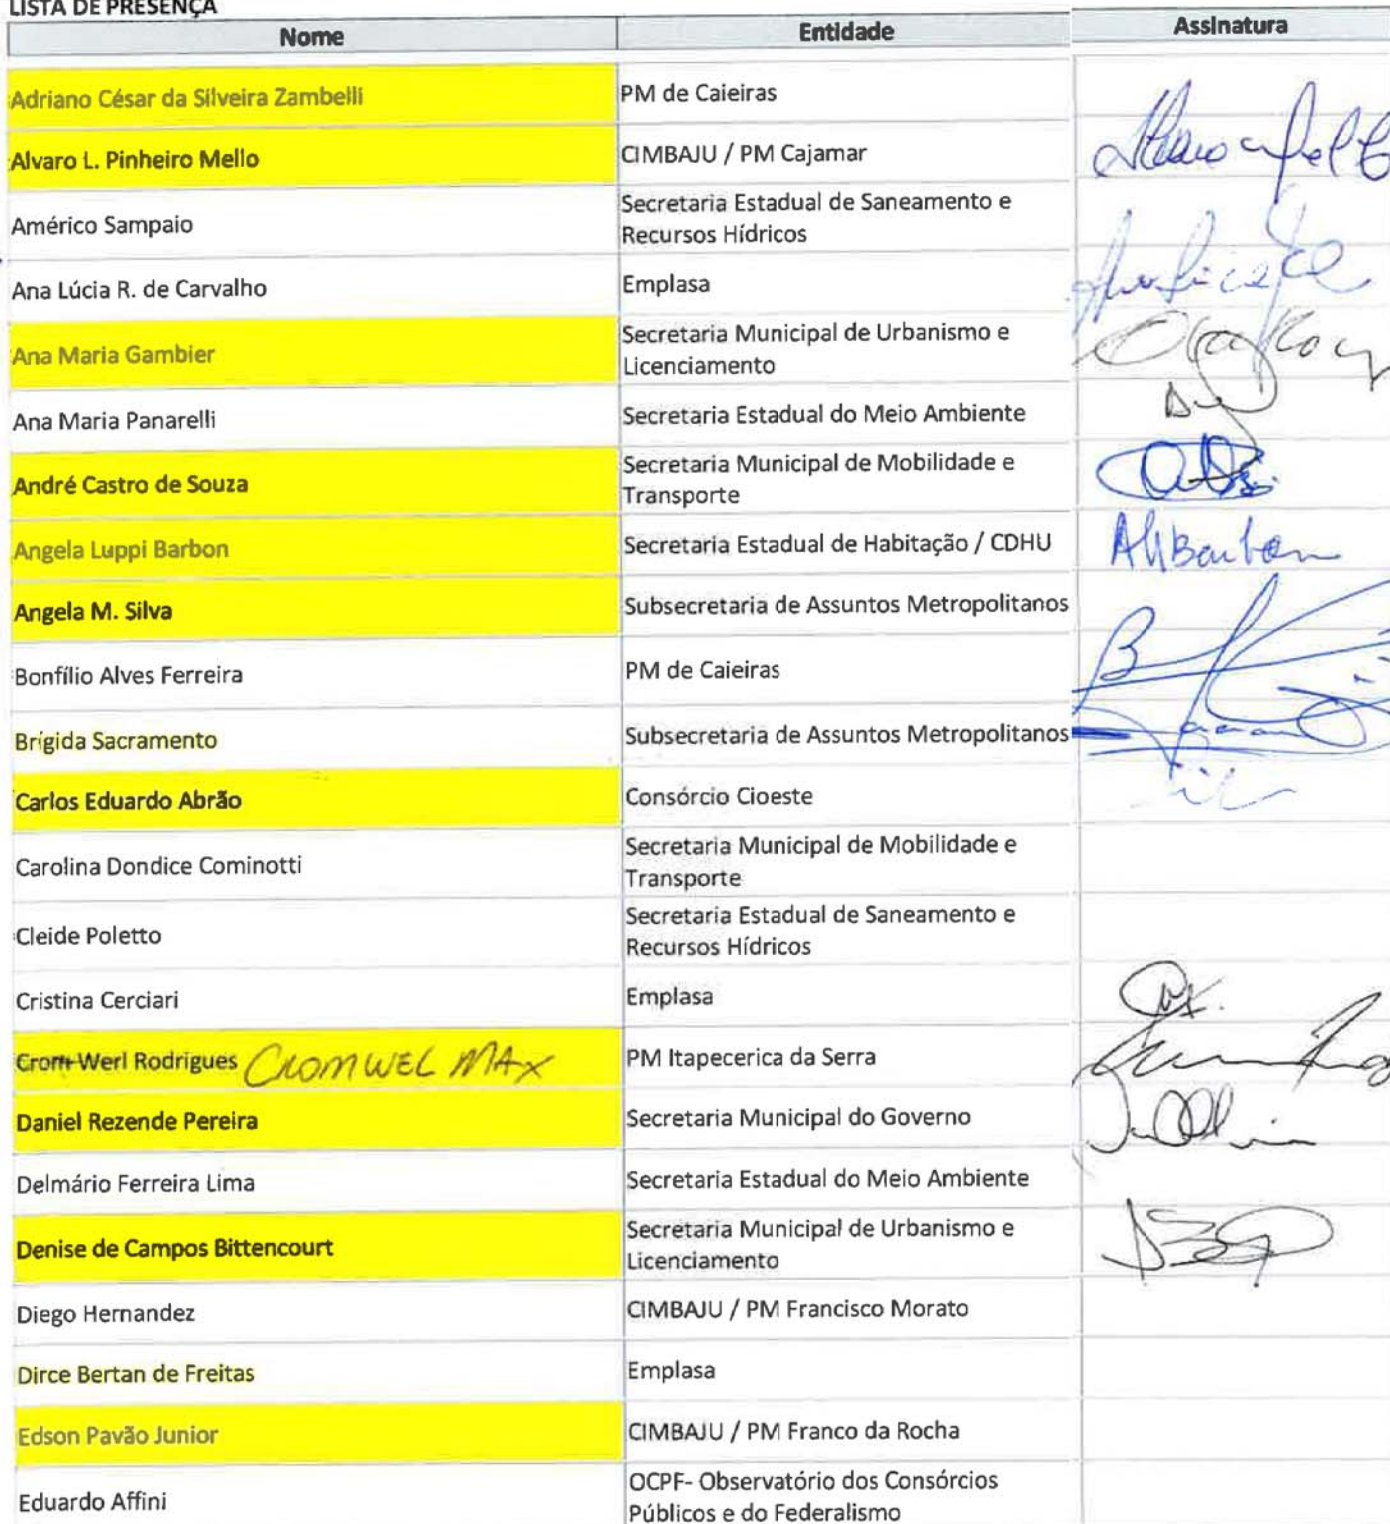 LISTA DE PRESENÇA
Nome Entidade Assinatura
Adriano César da Silveira Zambelli PM de Caieiras
Alvaro L. Pinheiro Mello CIMBAJU / PM Cajamar
Américo Sampaio Secretaria Estadual de Saneamento e
Recursos Hídricos
Ana Lúcia R. de Carvalho Emplasa
Ana Maria Gambier Secretaria Municipal de Urbanismo e
Licenciamento
Ana Maria Panarelli Secretaria Estadual do Meio Ambiente
André Castro de Souza Secretaria Municipal de Mobilidade e
Transporte
Angela Luppi Barbon Secretaria Estadual de Habitação / CDHU
Angela M. Silva Subsecretaria de Assuntos Metropolitanos
Bonfílio Alves Ferreira PM de Caieiras
Brígida Sacramento Subsecretaria de Assuntos Metropolitanos
Carlos Eduardo Abrão Consórcio Cioeste
Carolina Dondice Cominotti Secretaria Municipal de Mobilidade e
Transporte
Cleide Poletto Secretaria Estadual de Saneamento e
Recursos Hídricos
Cristina Cerciari Emplasa
Crom Werl Rodrigues CROMWEL MAX PM Itapecerica da Serra
Daniel Rezende Pereira Secretaria Municipal do Governo
Delmário Ferreira Lima Secretaria Estadual do Meio Ambiente
Denise de Campos Bittencourt Secretaria Municipal de Urbanismo e
Licenciamento
Diego Hernandez CIMBAJU / PM Francisco Morato
Dirce Bertan de Freitas Emplasa
Edson Pavão Junior CIMBAJU / PM Franco da Rocha
Eduardo Affini OCPF- Observatório dos Consórcios
Públicos e do Federalismo